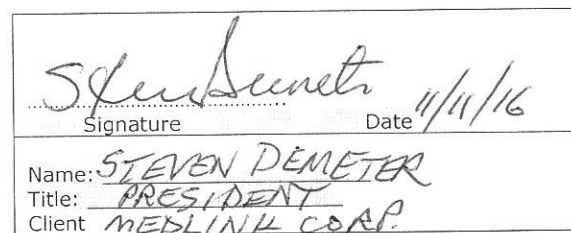 Steven Demeter 11/11/16
Signature Date
Name: STEVEN DEMETER
Title: PRESIDENT
Client MEDLINK CORP.